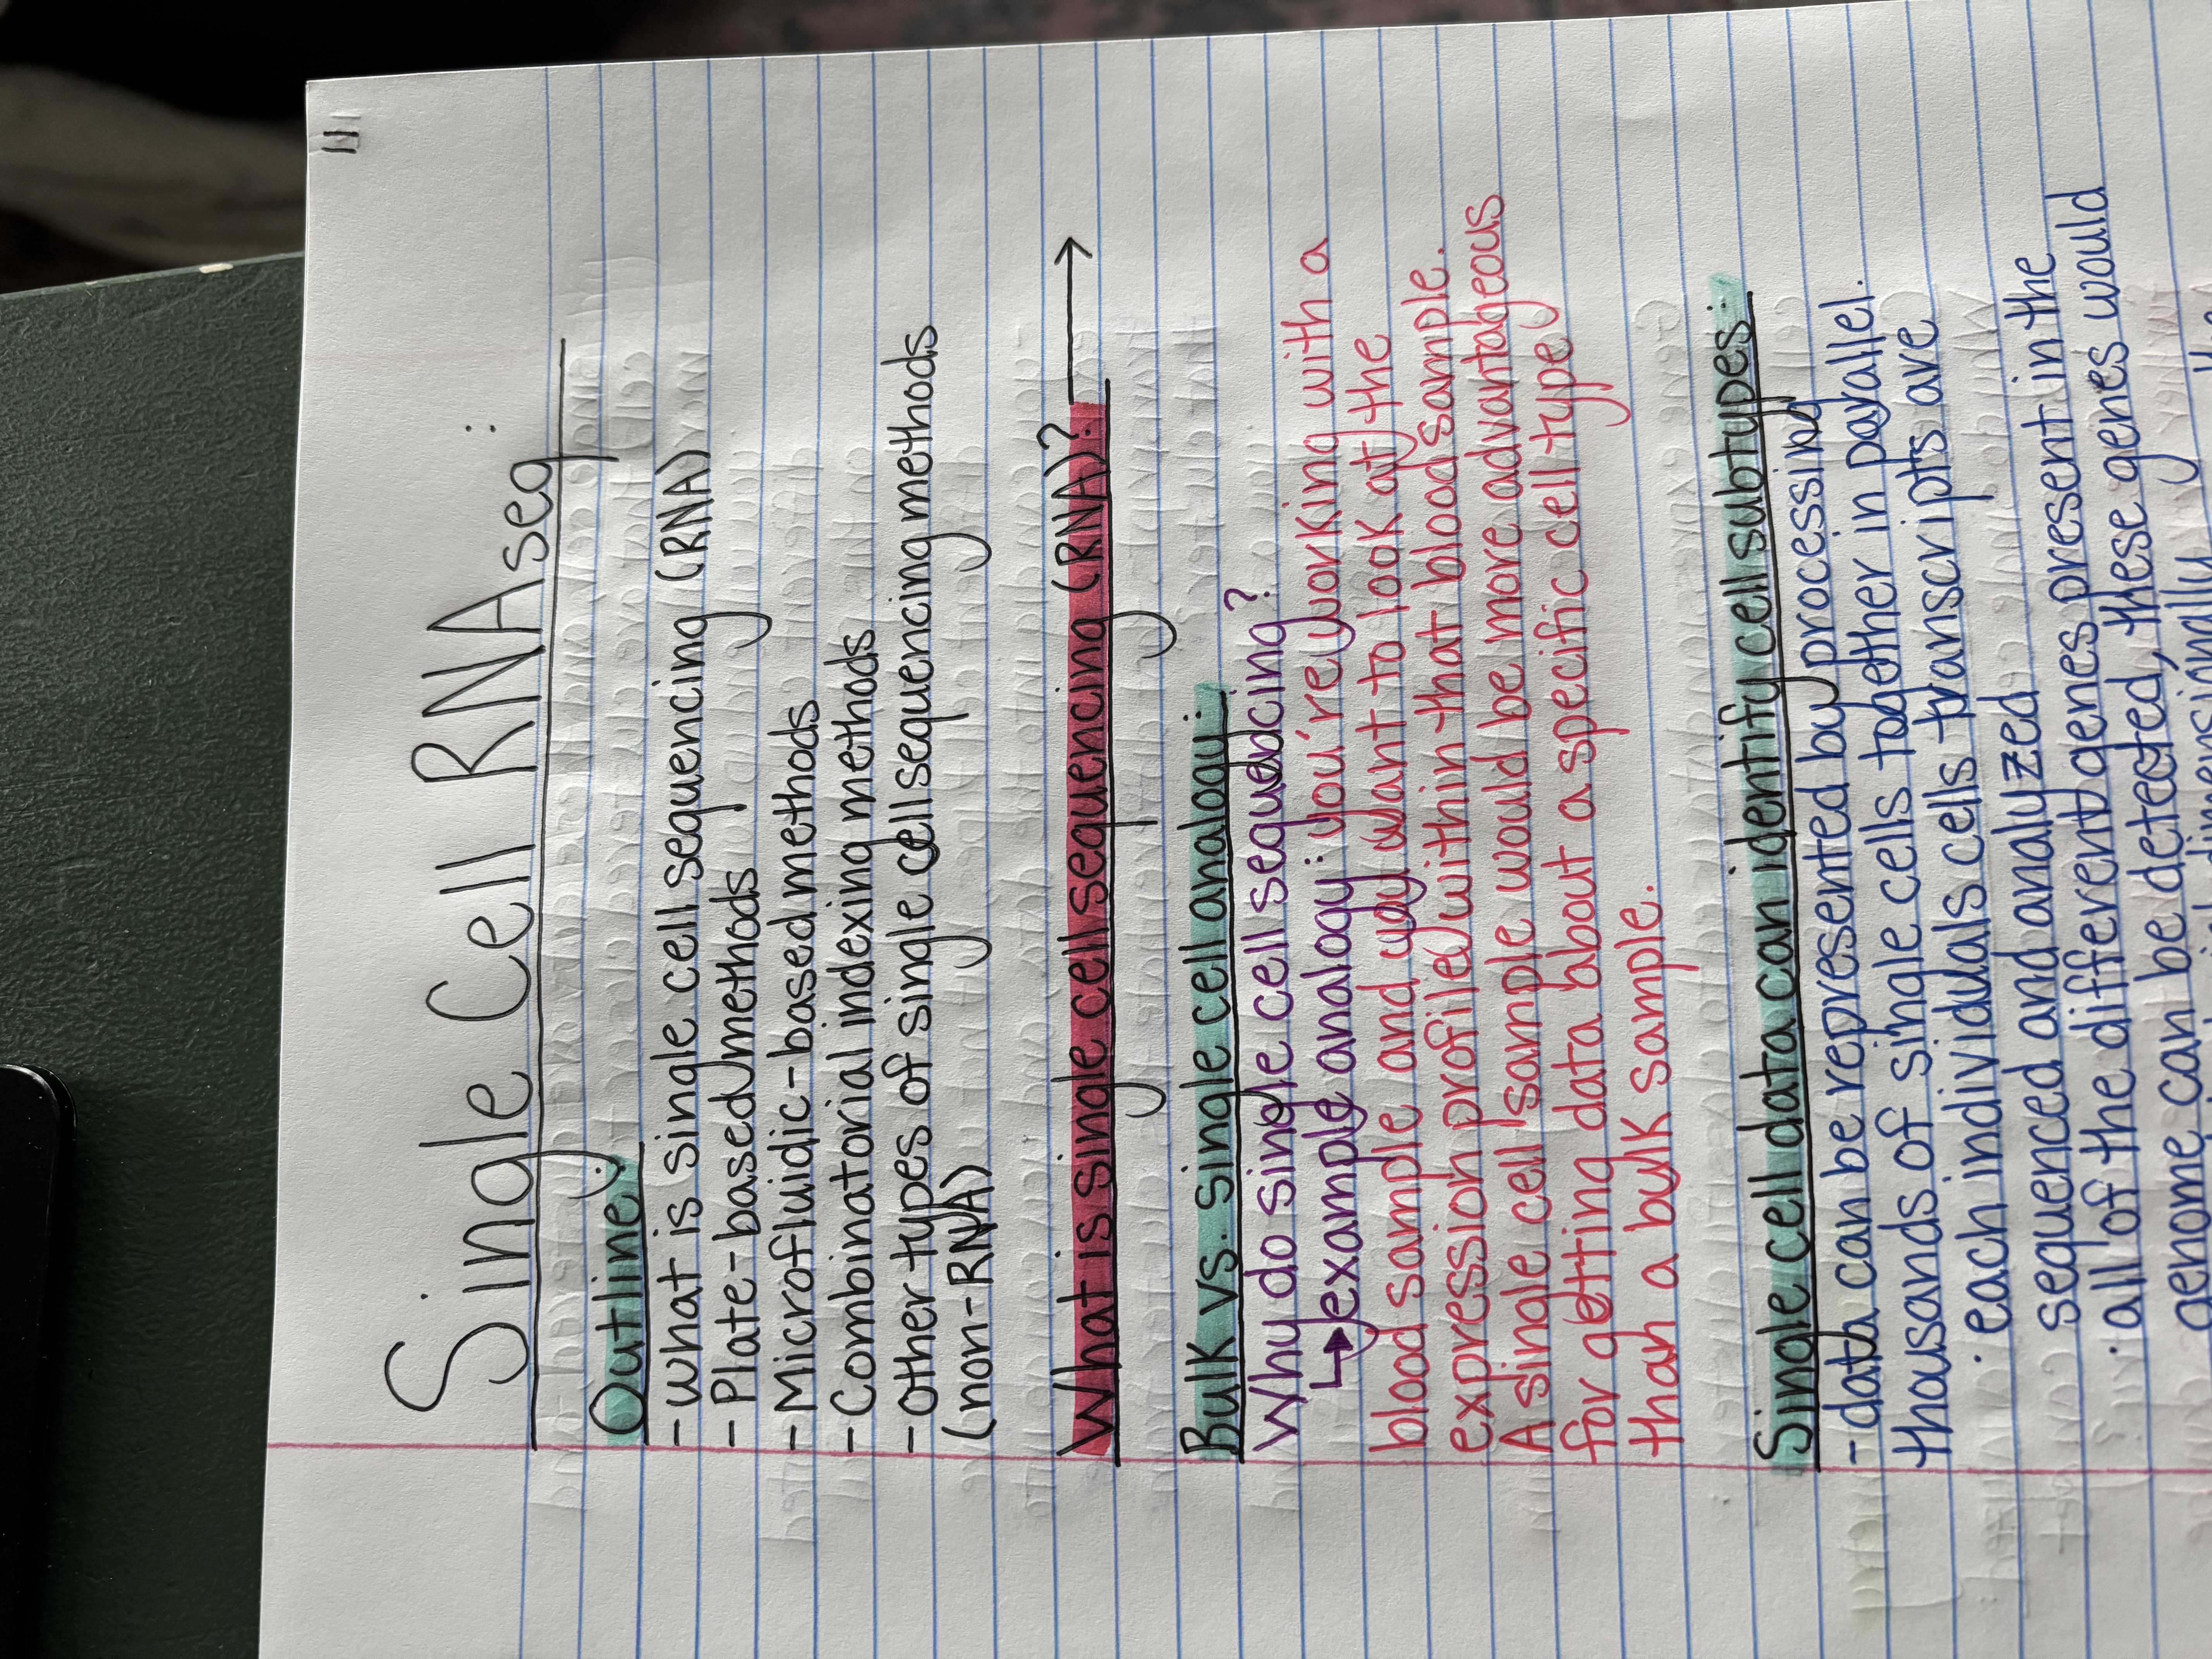 11
Single Cell RNAseq:
Outline:
-What is single cell sequencing (RNA)
-Plate-based methods
-Microfluidic-based methods
-Combinatorial indexing methods
-Other types of single cell sequencing methods
(non-RNA)
What is single cell sequencing (RNA)? →
Bulk vs. single cell analogy:
Why do single cell sequencing?
↳example analogy: you're working with a
blood sample and you want to look at the
expression profile within that blood sample.
A single cell sample would be more advantageous
for getting data about a specific cell type
than a bulk sample.
Single cell data can identify cell subtypes:
-data can be represented by processing
thousands of single cells together in parallel.
· each individuals cells transcripts are
sequenced and analyzed
· all of the different genes present in the
genome can be detected, these genes would